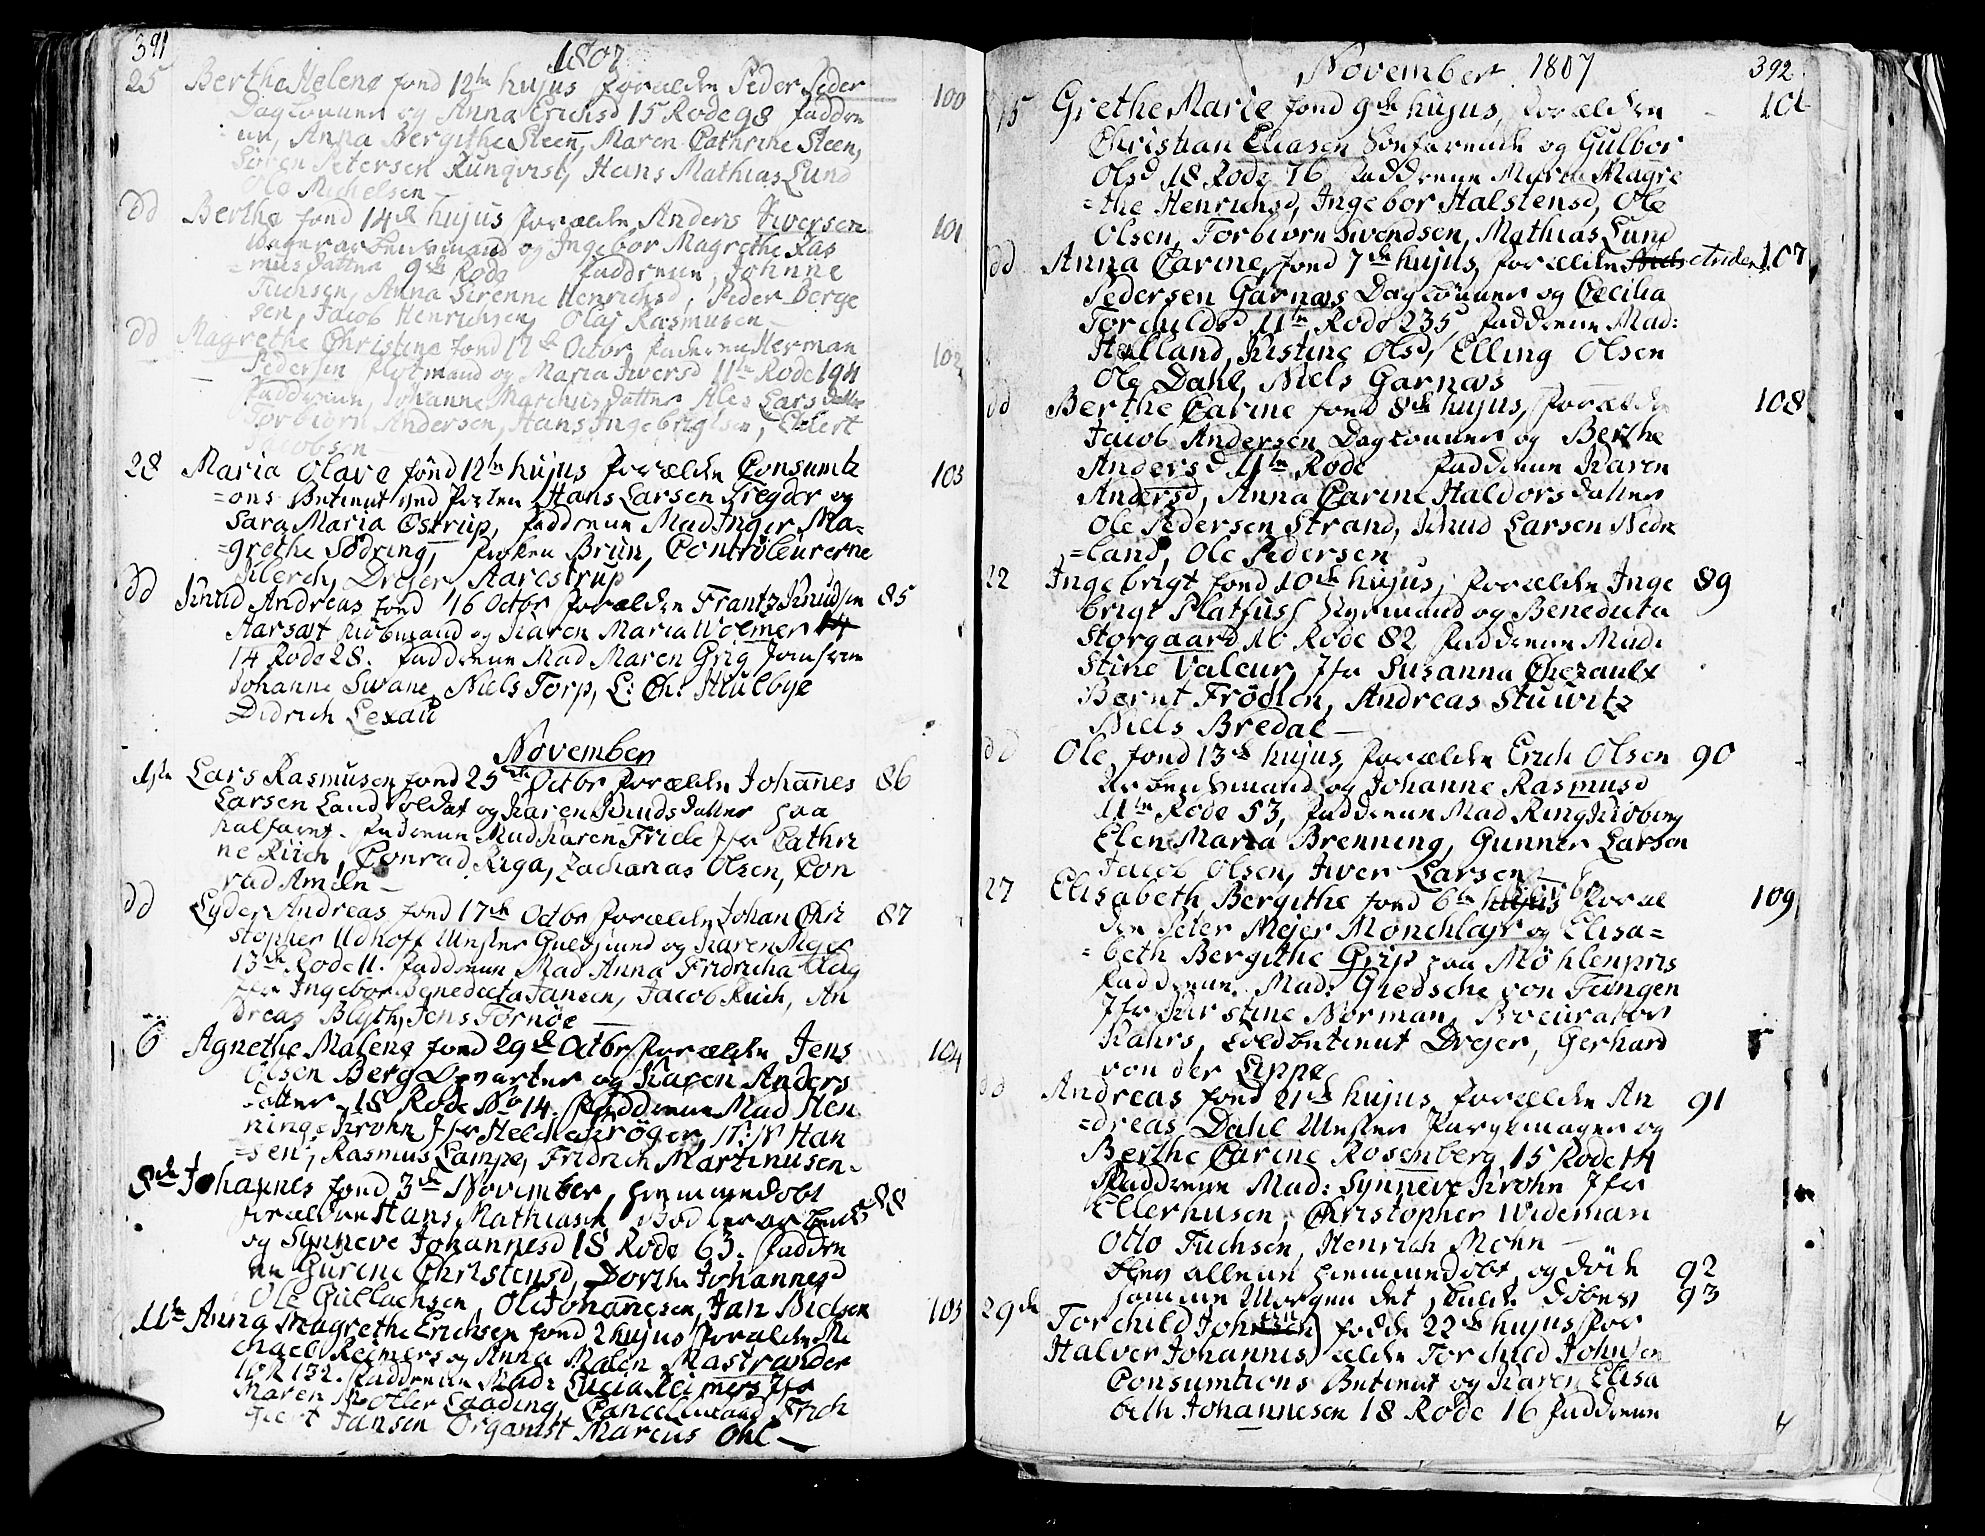 391
1807
25 Bertha Helene fond 12te hujus forældre Peder Peder 100
Daglønner og Anna Erichsd 15 Rode 98 faddre
ne, Anna Bergithe Steen, Maren Cathrine Steen,
Søren Petersen Runqvist, Hans Mathias Lund
Ole Michelsen
dd Berthe fond 14de hujus forældre Anders Iversen 101
og Ingebor Magrethe Ras
=mus datter 9de Rode faddrene, Johnne
Fuchsen, Anna Sirenne Henrichsd, Peder Berge
sen, Jacob Henrichsen, Olaj Rasmusen
dd Magrethe Christine fond 17de Octor Herman 102
Pedersen og Maria Iversd 11te Rode 194
Faddrene, Johanne Marthisdatter Ales Lars datter
Torbiørn Andersen, Hans Ingebrigtsen, Eilert
Jacobsen
28 Maria Olave fond 12te hujus forældre Consumti 103
=ons Betient ved Hans Larsen Fregdor og
Sara Maria Østrup, faddrene Mad Inger Ma=
=grethe Södring, frøken Brun, Contrôleurerne
Klerch, Drejer, Aarestrup
dd Knud Andreas fond 16 Octbr forældre Frantz Knudsen 85
Aarsæt Kiøbmand og Karen Maria Wolmer
14 Rode 28. faddrene Mad Maren Grig Jomfrue
Johanne Swane, Niels Torp, L: Ch: Hulbye
Didrich Lexau
November
1ste Lars Rasmusen fond 25de Octbr forældre Johannes 86
Larsen Landsoldat og Karen Knudsdatter paa
Kalfaret. Faddrene Mad Karen Friele Jfr Cathri
ne Riich, Conrad Riga, Zacharias Olsen, Con
rad Ameln
dd Lyder Andreas fond 17de Octbr forældre Johan Chri 87
stopher Udhoff Mester Guldsmed og Karen
13de Rode 11. faddrene Mad Anna Fridricha
Jfr Ingebor Benedicta Jansen, Jacob Riich, An
dreas Blyth, Jens Tornøe
6 Agnethe Malene fond 29de Octbr forældre Jens 104
Olsen Berg Opvarter og Karen Anders
datter 18 Rode No 14. Faddrene Mad Hen
ning Krohn Jfr Helche Krøger, Han
=sen, Rasmus Lampe, Fridrich Martinusen
8de Johannes fond 3de November, hiemmedøbt 88
forældre Hans Mathiasen
og Synneve Johannesd 18 Rode 63. faddre
ne Gurine Christensd, Dorthe Johannesd
Ole Gullachsen, Ole Johannesen, Jan Nielsen
11te Anna Magrethe Erichsen fond 2 hujus forældre Mi 105
chael Reimers og Anna Malen Mastrander
16 R 132. faddrene Mad: Lucia Reimers Jfr
Maren Møller Laading, Cancelieraad Frich
Giert Jansen Organist Marcus Ohl
November 1807 392
15 Grethe Marie fond 9de hujus, forældre 106
Christian Eliasen Sønfarende og Gulbor
Olsd 18 Rode 76 faddrene Maren Magre
=the Henrichsd, Ingebor Halstensd, Ole
Olsen, Torbiørn Swendsen, Mathias Lund
dd Anna Carine fond 7de hujus, forældre 107
Pedersen Garnæs Daglønner og Cecilia
Torchildsd 11te Rode 235 faddrene Mad:
Halland, Kistine Olsd, Elling Olsen
Ole Dahl, Niels Garnæs
dd Berthe Carine fond 8de hujus, forældre 108
Jacob Andersen Daglønner og Berthe
Andersd 11te Rode faddrene Karen
Andersd, Anna Carine Haldorsdatter
Ole Pedersen Strand, Knud Larsen Nede
=land, Ole Pedersen
22 Ingebrigt fond 10de hujus, forældre Inge 89
brigt Platfus og Benedicta
Storgaard 16 Rode 82 faddrene Mad:
Stine Valeur, Jfr Susanna Chezaulx
Bernt Frödien, Andreas Stuwitz
Niels Bredal
dd Ole fond 13de hujus, forældre Erich Olsen 90
Arbeidsmand og Johanne Rasmusd
11te Rode 53, faddrene Mad Ring Kiøbing
Elen Maria Brenning, Gunner Larsen
Jacob Olsen, Iver Larsen
27 Elisabeth Bergithe fond 6te hujus foræl 109
dre Peter Mejer Mønchlajr og Elisa=
=beth Bergithe Grip paa Möhlenpris
faddrene. Mad: Giedsche von Tangen
Jfr Kirstine Norman, Procurator
Rahrs, Toldbetient Drejer, Gerhard
von der Lippe
dd Andreas fond 21de hujus forældre An 91
=dreas Dahl Mester Parykmager og
Berthe Carine Rosenberg, 15 Rode 14
Faddrene Mad: Synneve Krohn Jfr
Ellerhusen, Christopher Wideman
Otto Fuchsen, Henrich Mohn
blev allene hiemmedøbt, og døde 92
samme Morgen det skulde døbes 93
29de Torchild Johnsen) fødde 22de hujus for
Halver Johannis) ældre Torchild Johnsen
Consumtions Betient og Karen Elisa
beth Johannesen 18 Rode 16 faddrene